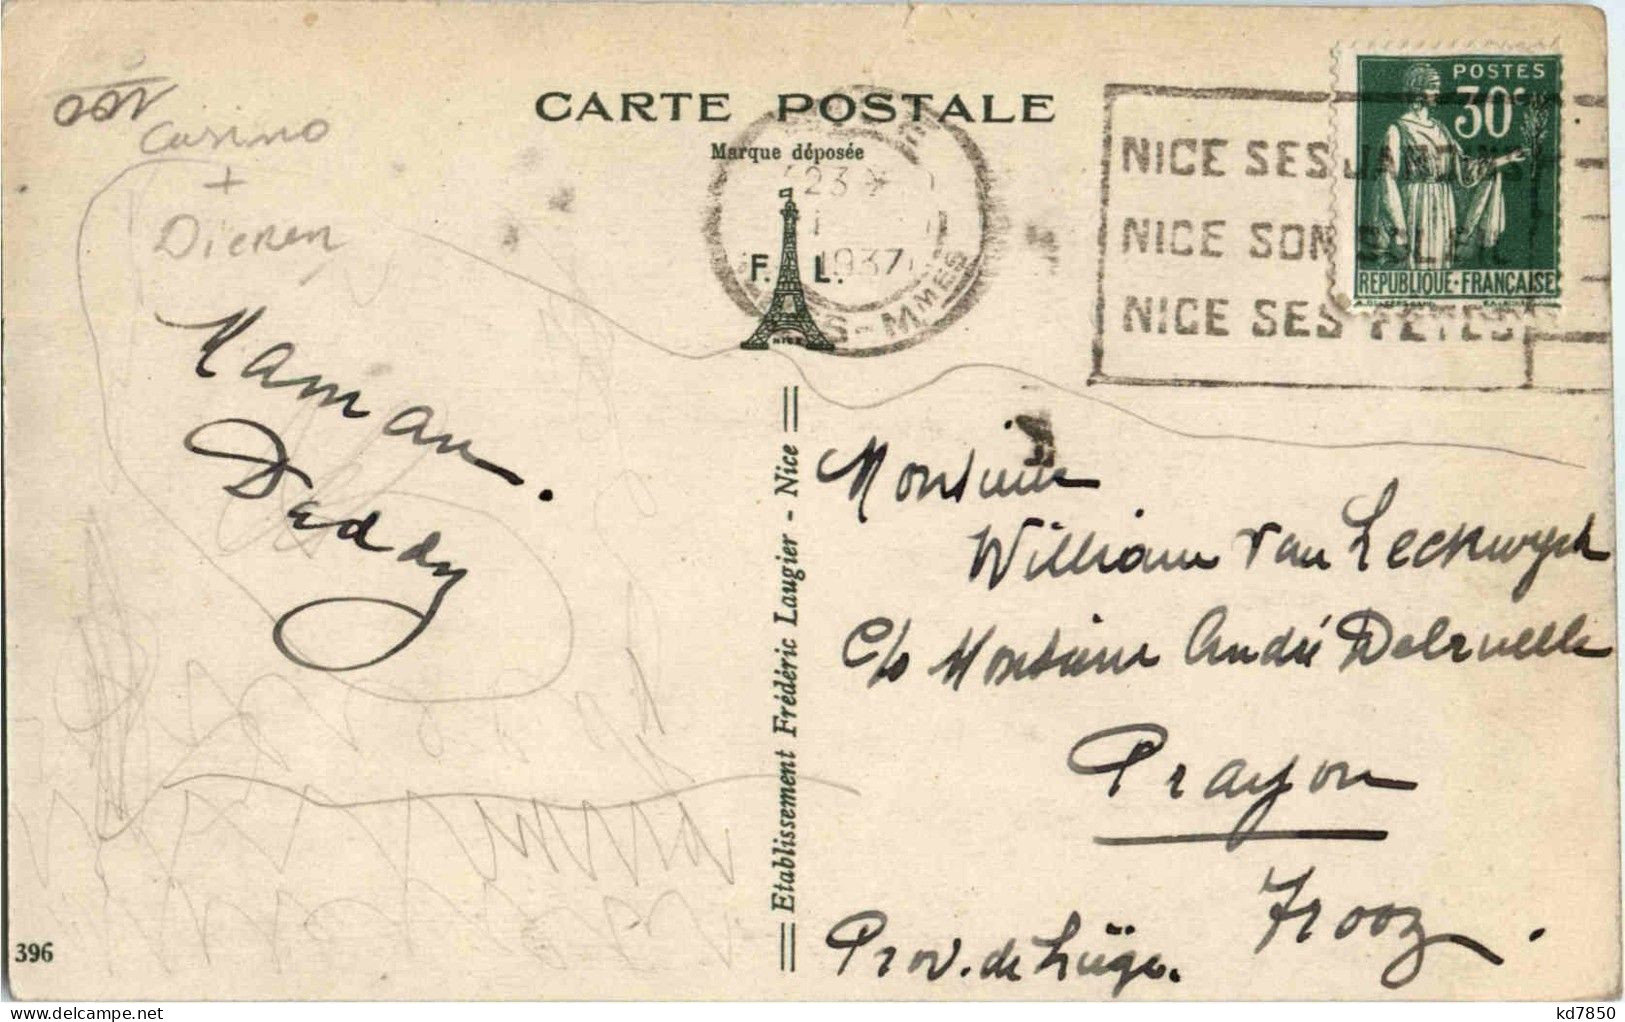 CARTE POSTALE
Marque déposée
F. L.
NICE
23
1937
S-MMES
NICE SES JARDINS
NICE SON SOLEIL
NICE SES FETES
POSTES
30c
REPUBLIQUE·FRANÇAISE
Casino
+
Dieren
Maman.
Daddy
Etablissement Frédéric Laugier - Nice
Monsieur
William van Leckwyck
C/o Monsieur André Delruelle
Prayon
Trooz.
Prov. de Liège.
396
kd7850